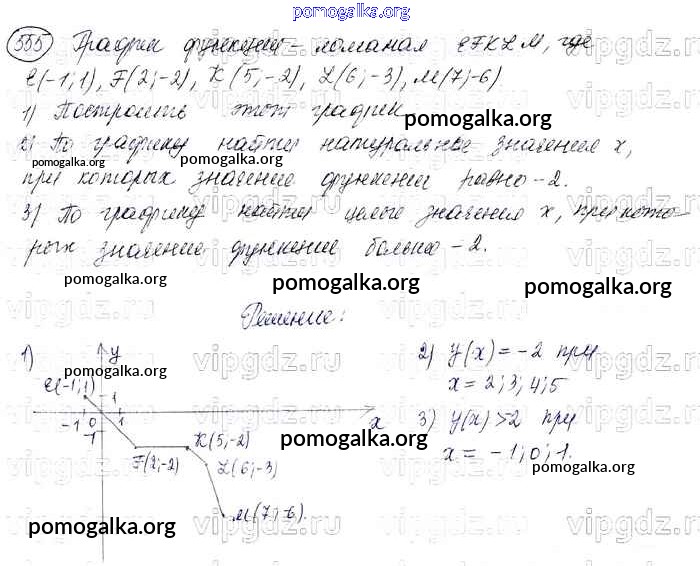 pomogalka.org
555 График функции - ломаная EFKLM, где
E(-1;1), F(2;-2), K(5,-2), L(6;-3), M(7;-6)
1) Построить этот график
pomogalka.org
2) По графику найти натуральные значения x,
pomogalka.org pomogalka.org
при которых значение функции равно -2.
3) По графику найти целые значения x, при кото-
рых значение функции больше -2.
pomogalka.org pomogalka.org pomogalka.org
Решение:
vipgdz.ru vipgdz.ru vipgdz.ru
1) y 2) y(x) = -2 при
E(-1;1) 1 pomogalka.org x = 2; 3; 4; 5
-1 0 1 x 3) y(x) > 2 при
-1 K(5,-2) pomogalka.org x = -1; 0; 1.
F(2;-2) L(6;-3) pomogalka.org
M(7;-6).
pomogalka.org pomogalka.org
vipgdz.ru vipgdz.ru vipgdz.ru